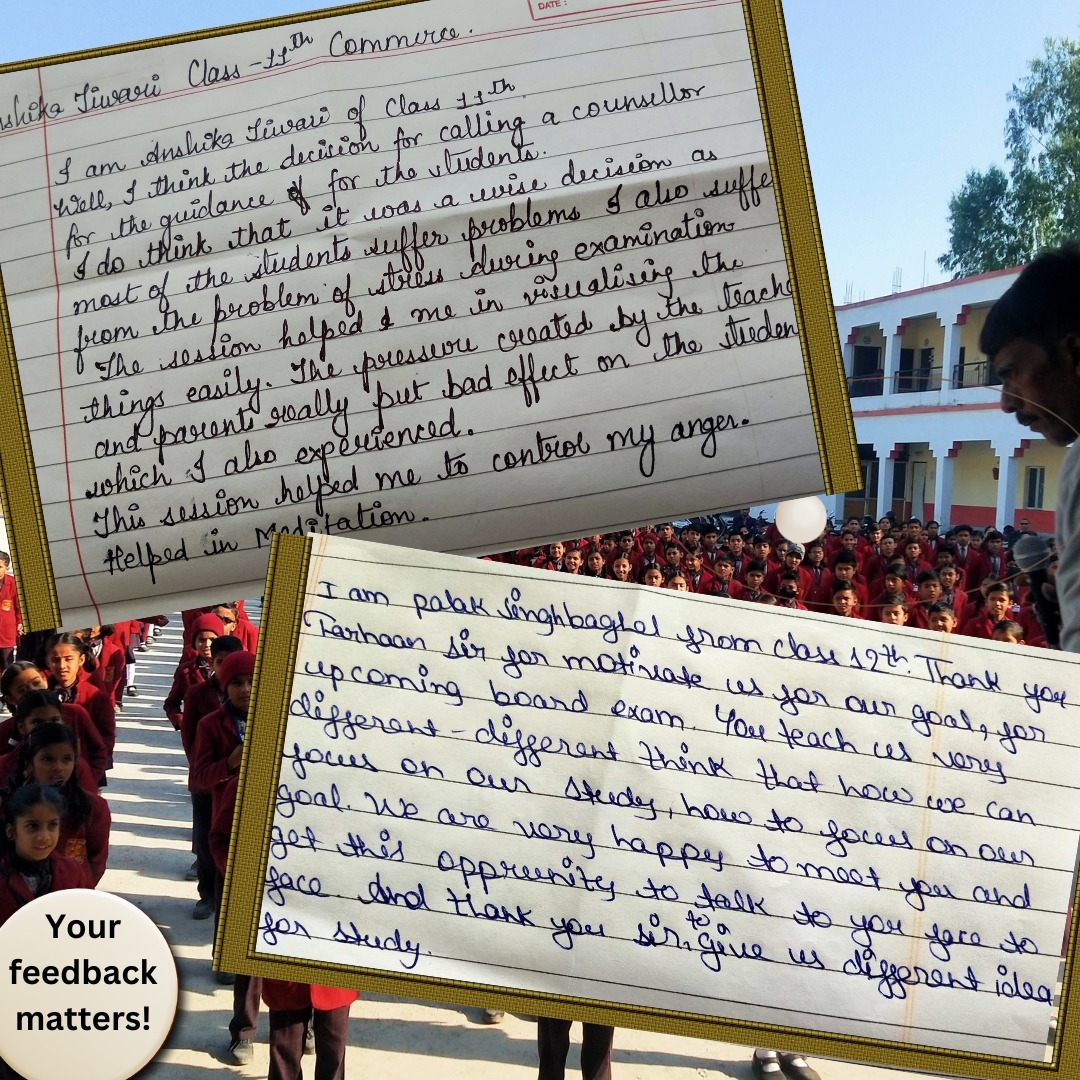 DATE :
shika Tiwari Class - 11th Commerce.
I am Anshika Tiwari of Class 11th
Well, I think the decision for calling a counsellor
for the guidance for the students.
I do think that it was a wise decision as
most of the students suffer problems I also suffe
from the problem of stress during examination
The session helped me in visualising the
things easily. The pressure created by the teache
and parent really put bad effect on the studen
which I also experienced.
This session helped me to control my anger.
Helped in Meditation.
I am palak singhbaghel from class 12th. Thank you
Farhaan sir for motivate us for our goal, for
upcoming board exam. You teach us very
different - different think that how we can
focus on our study, how to focus on our
goal. We are very happy to meet you and
get this oppreunity to talk to you face to
face. And thank you sir, to give us different idea
for study.
Your
feedback
matters!